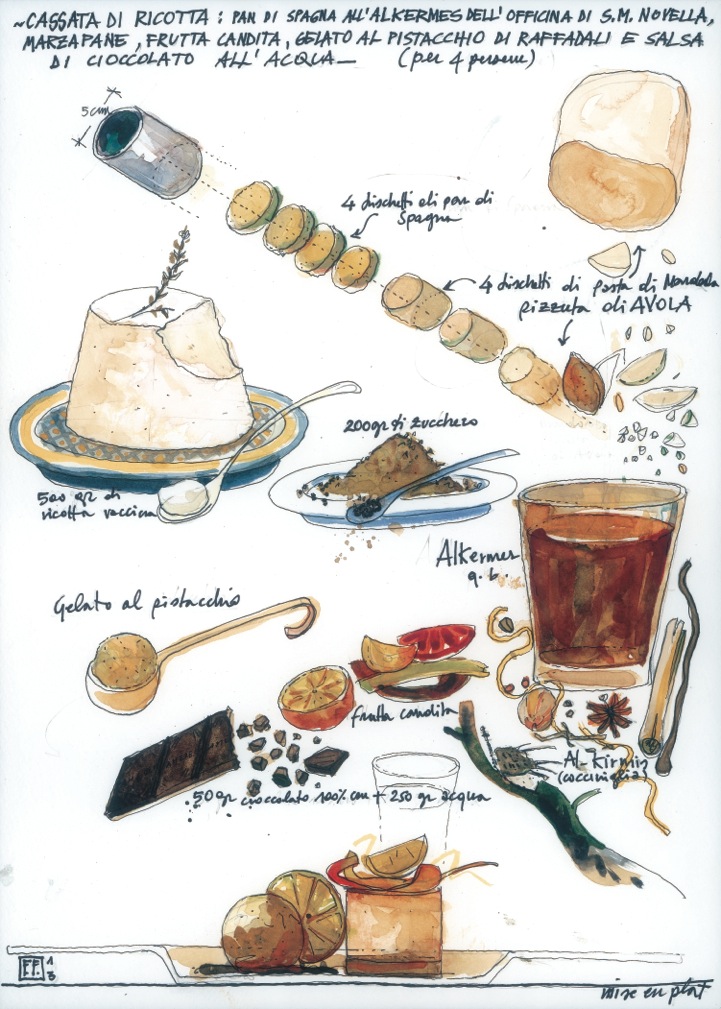 ~CASSATA DI RICOTTA: PAN DI SPAGNA ALL'ALKERMES DELL'OFFICINA DI S.M. NOVELLA,
MARZAPANE, FRUTTA CANDITA, GELATO AL PISTACCHIO DI RAFFADALI E SALSA
DI CIOCCOLATO ALL'ACQUA_ (per 4 persone)
5 cm
4 dischetti di pan di
Spagna
4 dischetti di pasta di Mandorla
pizzuta di AVOLA
200 gr di zucchero
500 gr di
ricotta vaccina
Alkermes
q.b.
Gelato al pistacchio
frutta candita
Al-Kirmiz
(cocciniglia)
50 gr cioccolato 100% cm + 250 gr acqua
F.F. 13
mise en plat